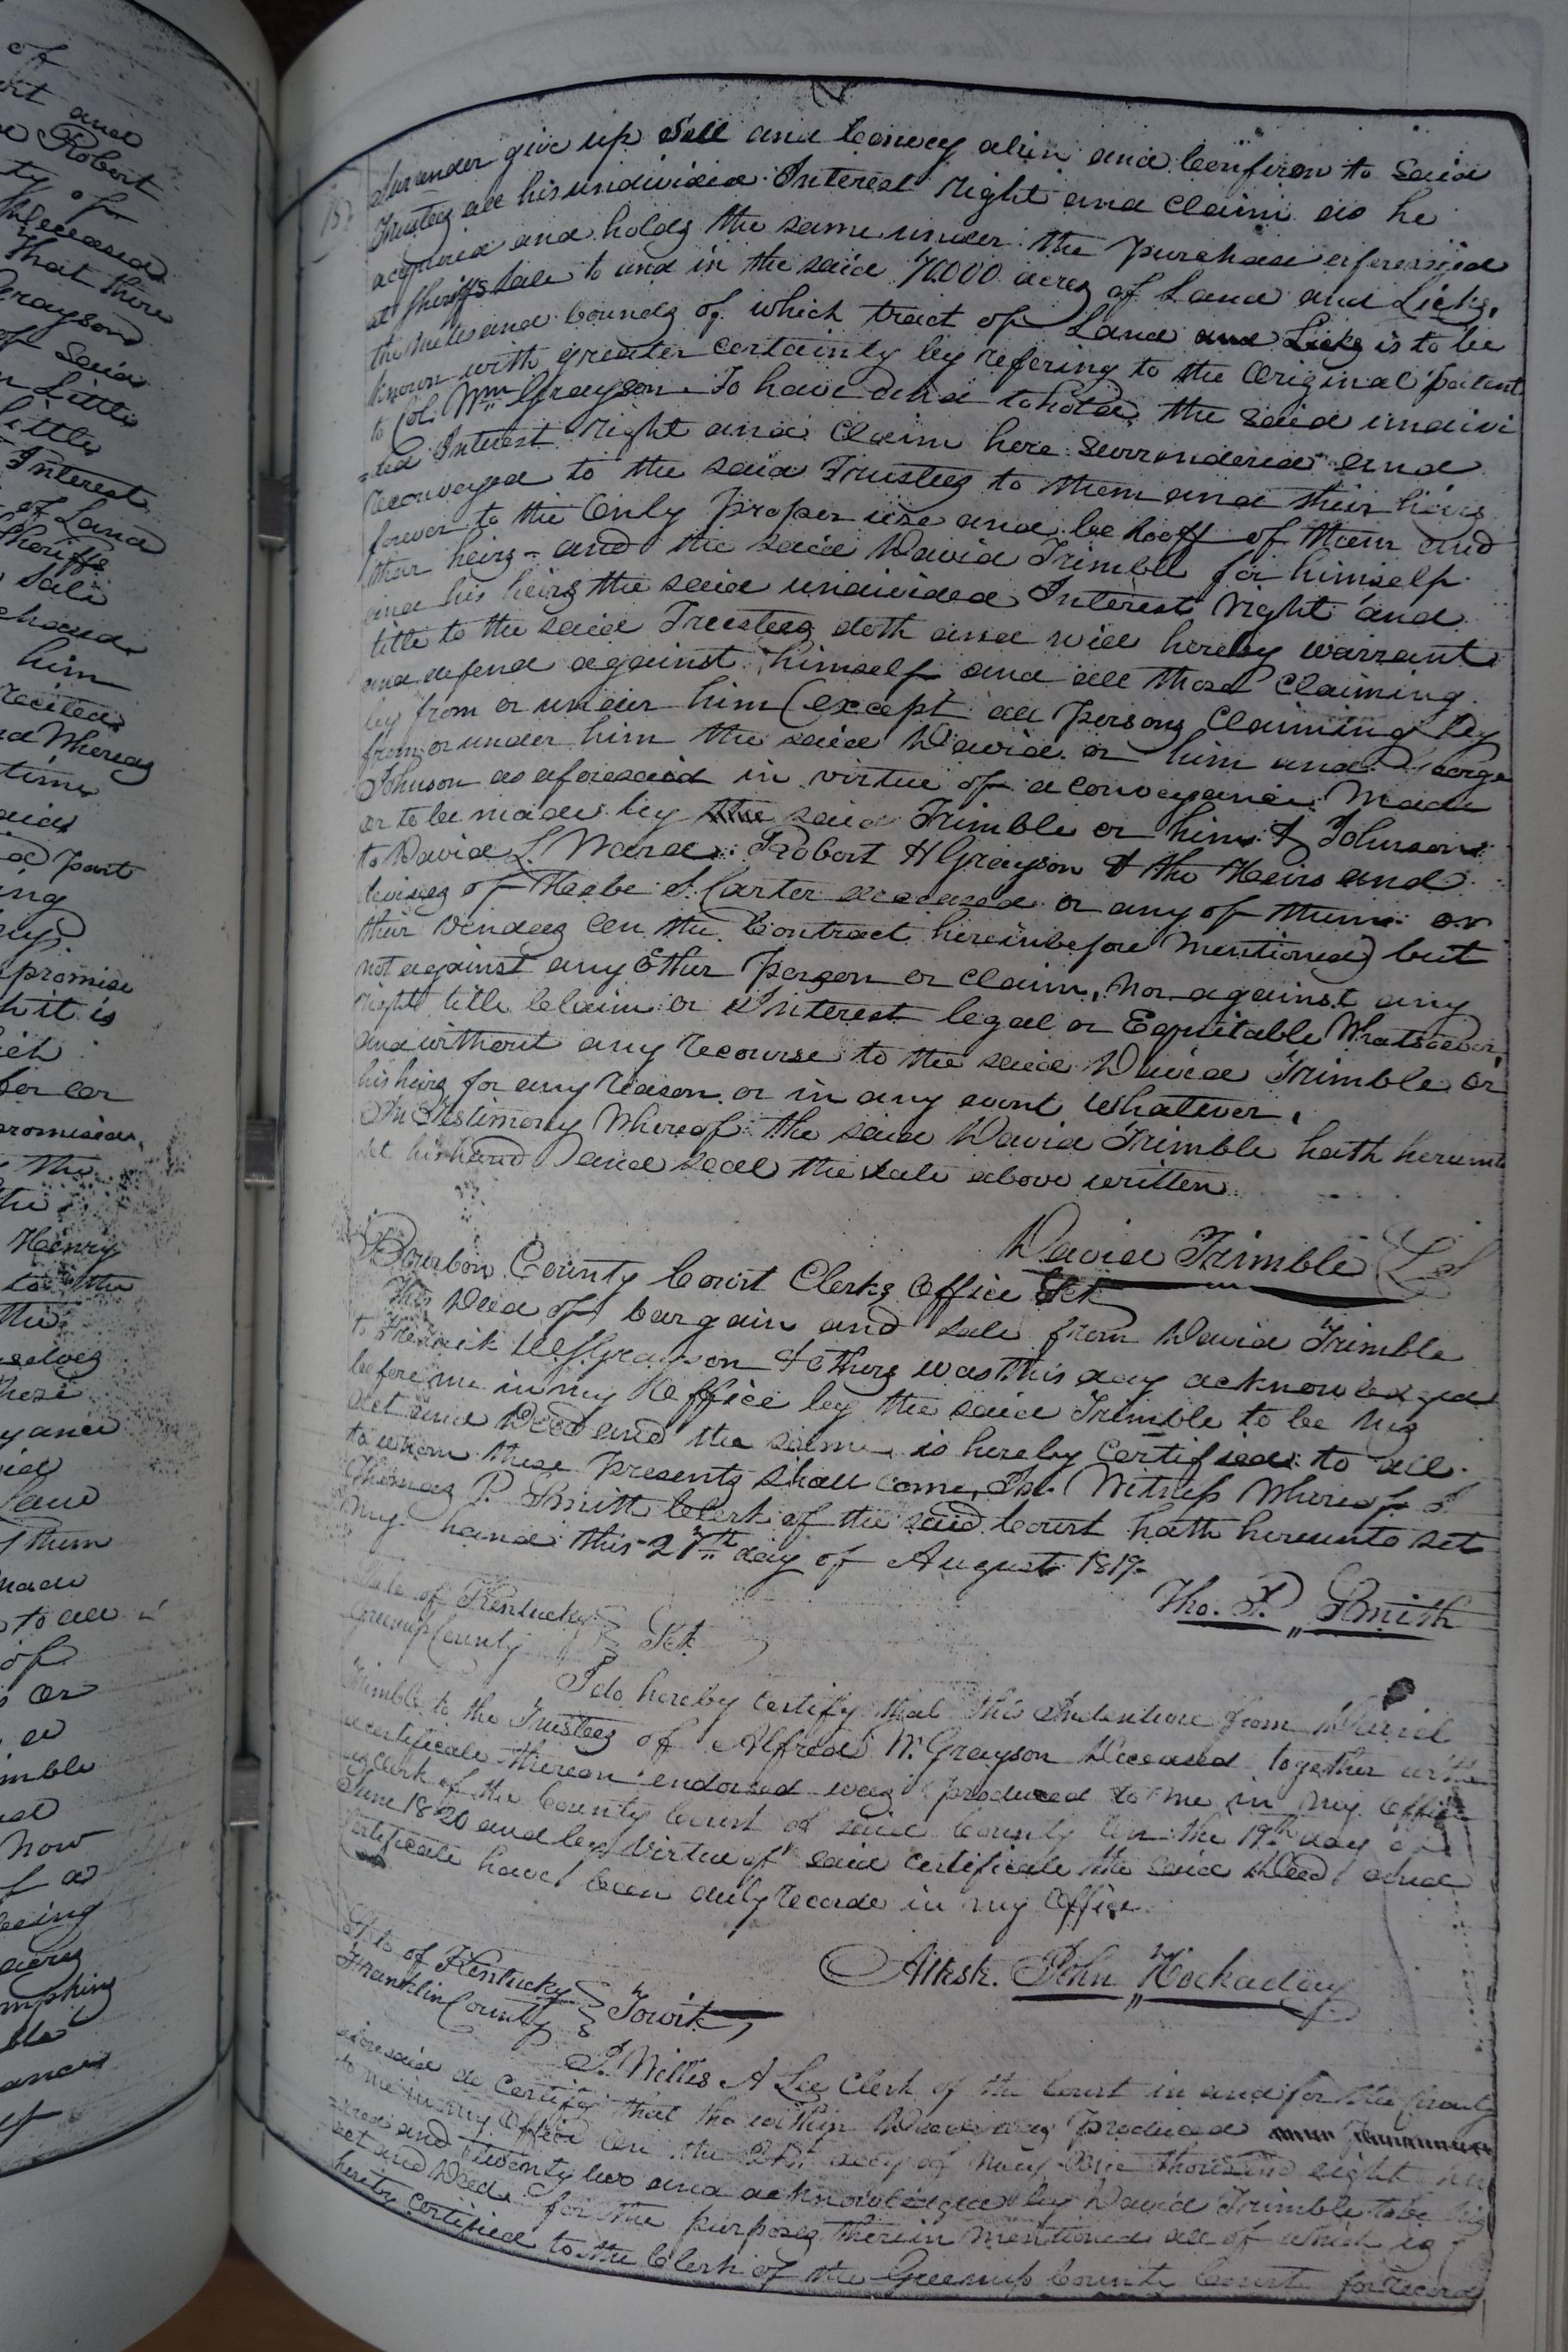 of
and
Robert
ty of
deceased
That there
Grayson
of said
Little
Little
Interest
of Land
Sheriffs
Sale
him
recited
Whereas
time
part
ing
promise
it is
for or
promised
the
Henry
to the
the
selves
these
Land
them
made
to all
of
or
now
being
acres
Surrender give up Sell and Convey alien and Confirm to Said
Trustees all his undivided Interest right and claim as he
acquired and holds the same under the purchase aforesaid
at Sheriffs Sale to and in the said 70000 acres of Land and Licks,
the mets and bounds of which tract of Land and Licks is to be
known with greater certainty by refering to the Original patent
to Col. Wm Grayson. To have and to hold the said undivi
=ded Interest right and claim here Surrendered and
reconveyed to the said Trustees to them and their heirs
forever to the Only proper use and behooff of them and
their heirs - and the said David Trimble for himself
and his heirs the said undivided Interest right and
title to the said Trustees doth and will hereby warrant
and defend against himself and all those claiming
by from or under him (except all persons claiming by
from or under him the said David or him and George
Johnson as aforesaid in virtue of a conveyance made
or to be made by the said Trimble or him & Johnson
to David L. Ward. Robert H Grayson & the Heirs and
devisees of Heabe S. Carter deceased or any of them or
their Vendees on the Contract hereinbefore mentioned) but
not against any Other person or claim, nor against any
right title Claim or Interest legal or Equitable Whatsoever,
and without any recourse to the said David Trimble or
his heirs for any reason or in any event whatever.
In Testimony Whereof the said David Trimble hath hereunto
set his hand and seal the date above written
David Trimble LS
Bourbon County Court Clerks Office Sct
This Deed of bargain and sale from David Trimble
to Grayson & Others was this day acknowledged
before me in my Office by the said Trimble to be his
act and Deed and the same is hereby certified to all
to whom these presents shall come, In Witness Whereof I
Thomas P. Smith Clerk of the said Court hath hereunto set
my hand this 27th day of August 1819
Tho. P. Smith
State of Kentucky
Greenup County Sct.
I do hereby certify that this Indenture from David
Trimble to the Trustees of Alfred W. Grayson Deceased together with
certificate thereon endorsed was produced to me in my Office
as Clerk of the County Court of said County on the 19th day of
June 1820 and by Virtue of said certificate the said Deed and
Certificate have been duly recorde in my Office.
Attest. John Hockaday
State of Kentucky
Franklin County Towit,
I. Willis A Lee Clerk of the Court in and for the County
aforesaid do certify that the within Deed was produced
to me in my Office on the day of May One thousand eight hun
dred and twenty two and acknowledged by David Trimble to be his
act and Deed for the purposes therein mentioned all of which is
hereby certified to the Clerk of the Greenup County Court for record